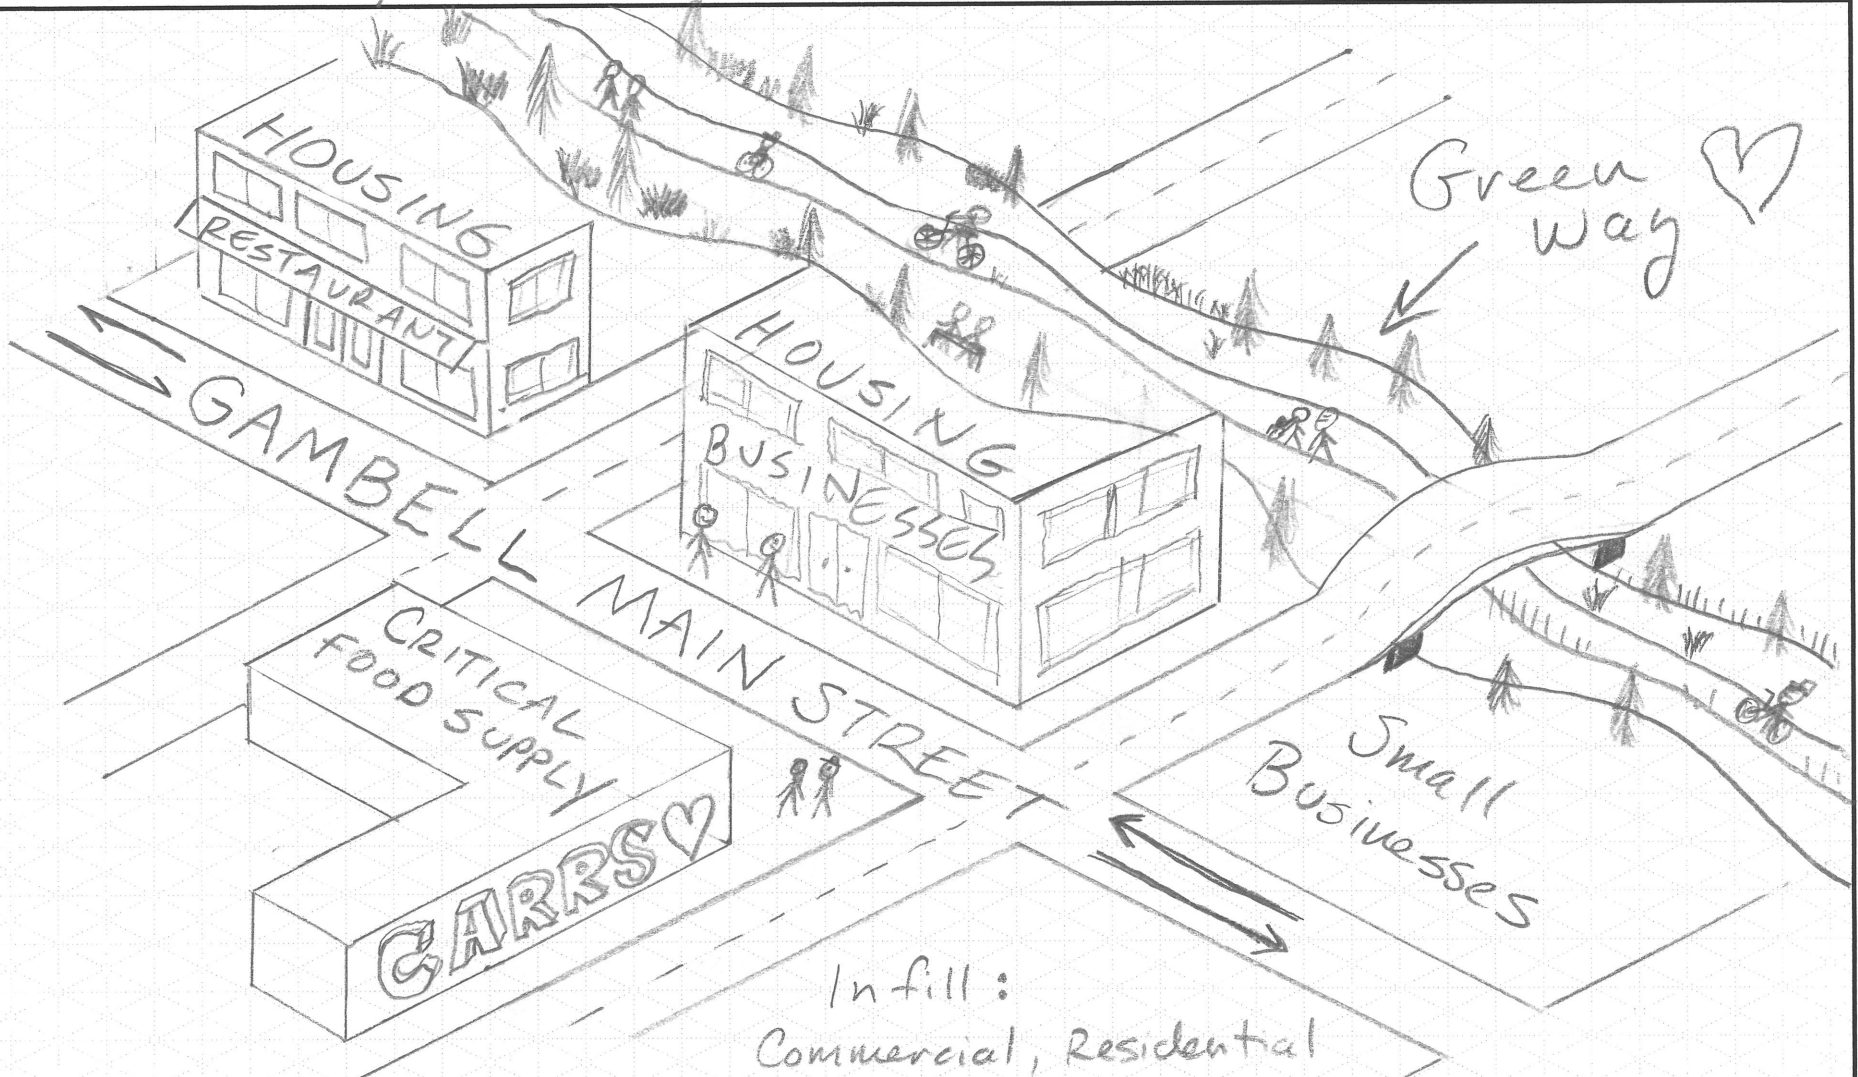 HOUSING
RESTAURANT
Green
Way
HOUSING
BUSINESSES
GAMBELL MAIN STREET
CRITICAL
FOOD SUPPLY
CARRS
Small
Businesses
Infill:
Commercial, Residential